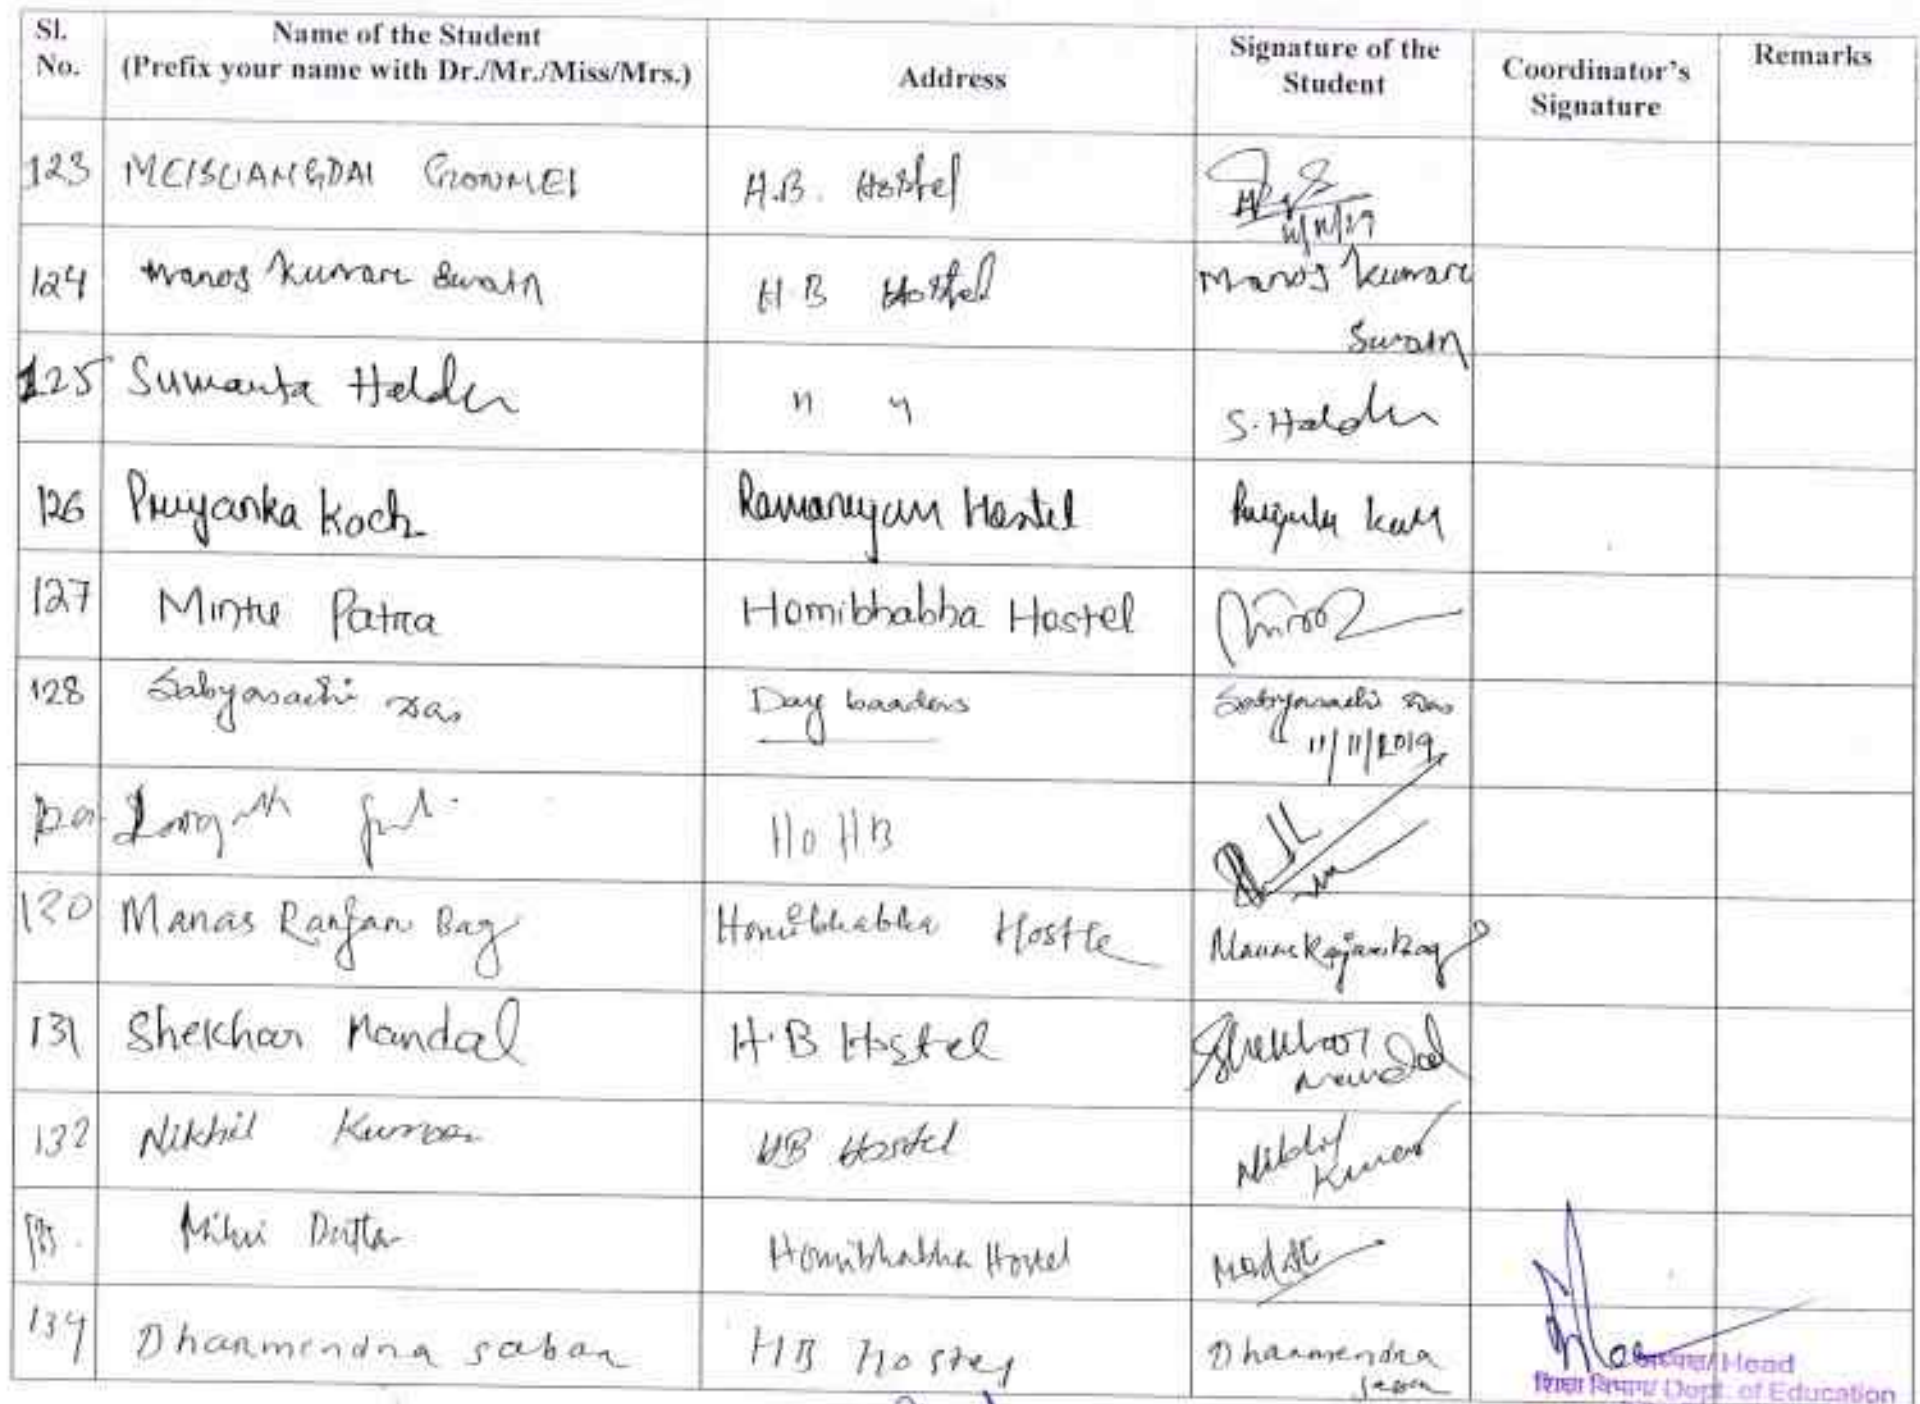 Sl. No. Name of the Student (Prefix your name with Dr./Mr./Miss/Mrs.) Address Signature of the Student Coordinator's Signature Remarks
123 MEISUANGDAI GONMEI H.B. Hostel
124 Manos Kumar Swain H.B Hostel Manos Kumar Swain
125 Sumanta Halder " " S. Halder
126 Priyanka Koch Ramanujan Hostel
127 Mintu Patra Homibhabha Hostel
128 Sabyasachi Das Day boaders Sabyasachi Das 11/11/2019
129 HO HB
130 Manas Ranjan Bag Homibhabha Hostle Manas Ranjan Bag
131 Shekhar Mandal H.B Hostel Shekhar Mandal
132 Nikhil Kumar HB Hostel Nikhil Kumar
133. Dutta Homibhabha Hostel
134 Dharmendra sabar HB Hostel Dharmendra sabar
अध्यक्ष/Head
शिक्षा विभाग/Dept. of Education